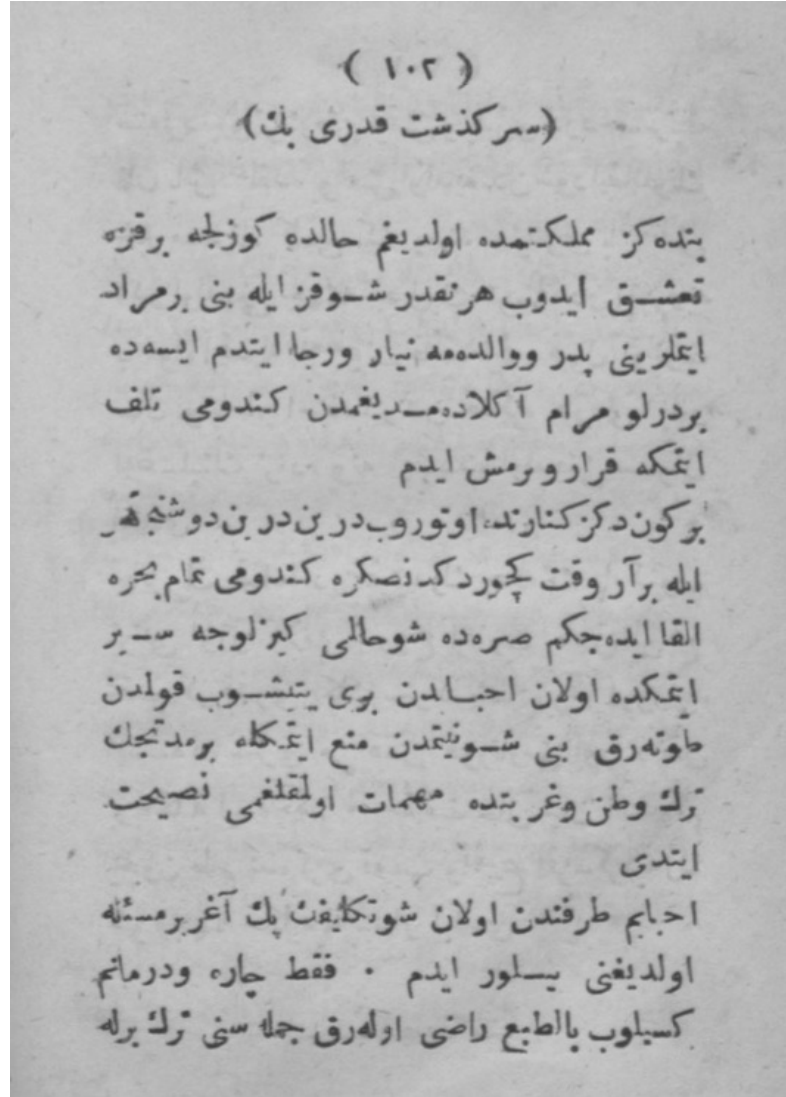 ( ١٠٢ )
(سرکذشت قدری بك)
بنده‌کز مملکتمده اولدیغم حالده کوزلجه برقزه
تعشــق ایدوب هرنقدر شــوقز ایله بنی برمراد
ایتملرینی پدر ووالده‌مه نیاز ورجا ایتدم ایسه‌ده
بردرلو مرام آکلاده‌مــدیغمدن کندومی تلف
ایتمکه قرار ویرمش ایدم
برکون دکز کنارنده اوتوروب درین درین دوشنجه‌لر
ایله برآز وقت کچوردکدنصکره کندومی تمام بحره
القا ایده‌جکم صره‌ده شوحالمی کیزلوجه ســیر
ایتمکده اولان احبــابدن بری یتیشــوب قولدن
طوته‌رق بنی شــونیتمدن منع ایتمکله برمدتجك
ترك وطن وغربتده مهمات اولمقلغمی نصیحت
ایتدی
احبابم طرفندن اولان شوتکلیفك پك آغر برمسئله
اولدیغنی بیــلور ایدم ٠ فقط چاره ودرمانم
کسیلوب بالطبع راضی اوله‌رق جمله سنی ترك برله